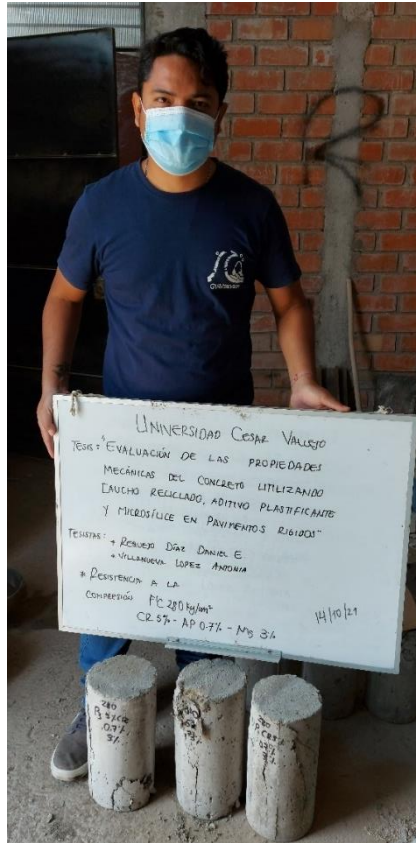 2
UNIVERSIDAD CESAR VALLEJO
TESIS: "EVALUACIÓN DE LAS PROPIEDADES
MECÁNICAS DEL CONCRETO UTILIZANDO
CAUCHO RECICLADO, ADITIVO PLASTIFICANTE
Y MICROSÍLICE EN PAVIMENTOS RIGIDOS"
TESISTAS:
+ REQUEJO DÍAZ DANIEL E
+ VILLANUEVA LOPEZ ANTONIA
* RESISTENCIA A LA
COMPRESIÓN F'C 280 kg/cm²
CR 5% - AP 0.7% - Ms 3%
14/10/21
280
0.7%
3%
280